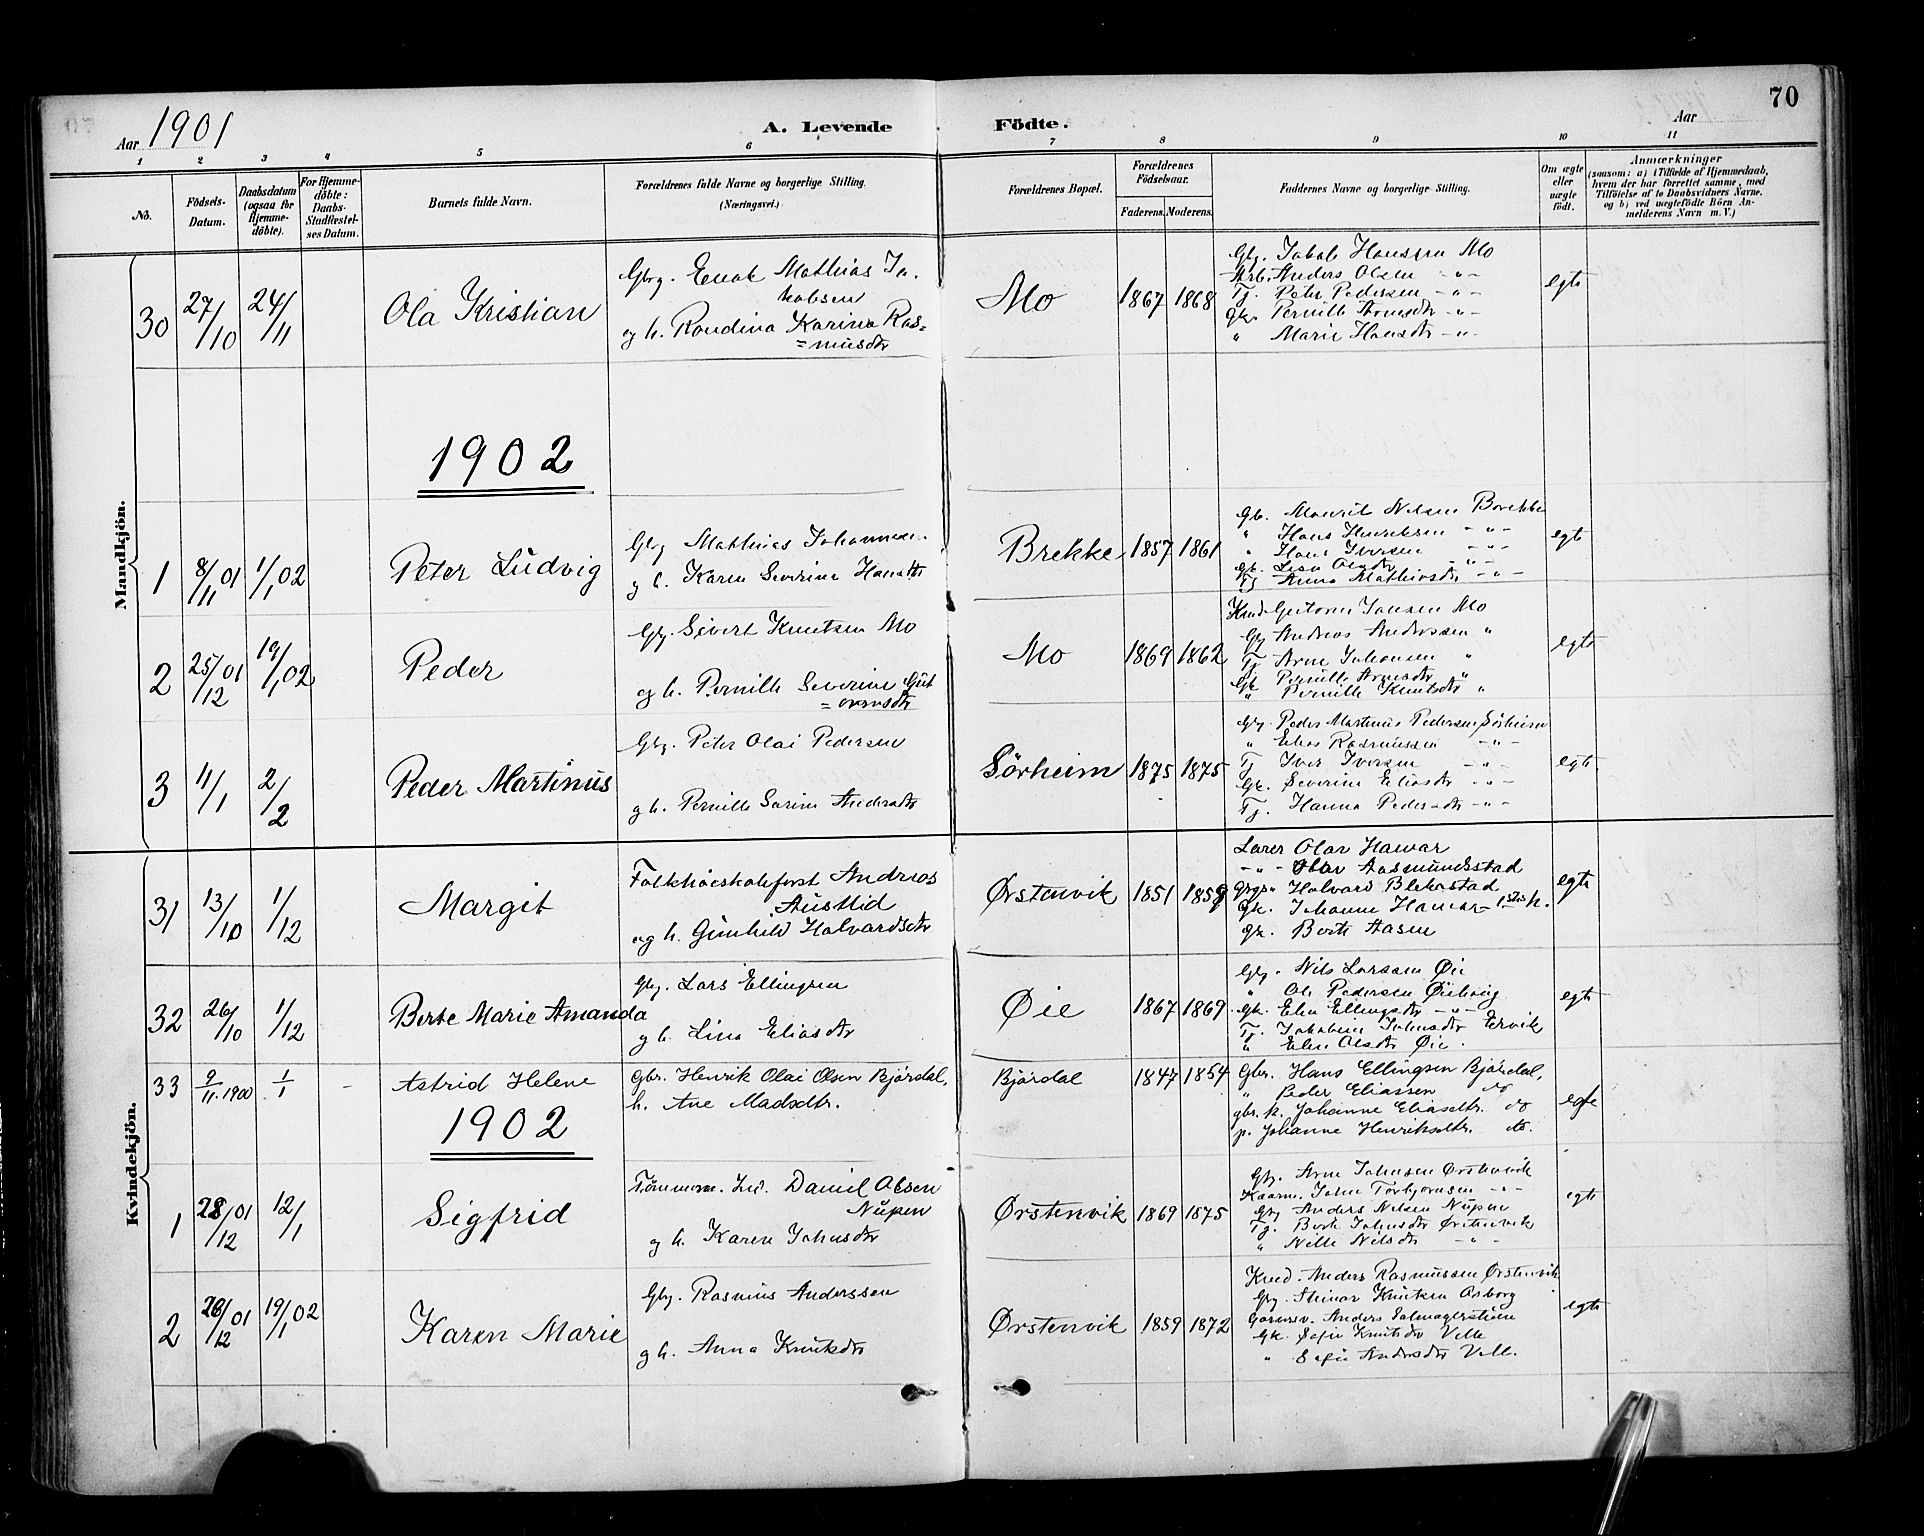 Aar 1901
A. Levende Födte.
Aar
70
1 2 3 4 5 6 7 8 9 10 11
No.
Födsels-Datum.
Daabsdatum (ogsaa for Hjemme-döbte).
For Hjemme-döbte: Daabs-Stadfæstel-ses Datum.
Barnets fulde Navn.
Forældrenes fulde Navne og borgerlige Stilling.
(Næringsvei.)
Forældrenes Bopæl.
Forældrenes Födselsaar.
Faderens. Moderens.
Faddernes Navne og borgerlige Stilling.
Om ægte eller uægte födt.
Anmærkninger
(saasom: a) i Tilfælde af Hjemmedaab,
hvem der har forrettet samme, med
Tilföielse af to Daabsvidners Navne.
og b) ved uægtefödte Börn An-
melderens Navn m. V.)
Mandkjön.
30 27/10 24/11 Ola Kristian
Gbrg. Enok Mathias Ja.
kobsen
og h. Rondina Karina Ras=
=musdtr
Mo 1867 1868
Gbg. Jakob Hanssen Mo
Arb. Anders Olsen -"-
Tj. Peter Pedersen -"-
Gk. Pernille Arnesdtr -"-
" Marie Hansdtr -"-
egte
1902
1 8/11 01 1/1 02 Peter Ludvig
Gbrg Mathias Johannes.
g h. Karen Severine Hansdtr
Brekke 1857 1861
Gb. Mourit Nilsen Brekke
" Hans Henriksen -"-
" Hans Iversen -"-
Gk. Lisa Olsdtr -"-
Tj Anna Mathiasdtr -"-
egte
2 25/12 01 19/1 02 Peder
Gbg. Sivert Knutsen Mo
og h. Pernille Severine Gut
=ormsdtr
Mo 1869 1862
Kaard. Gutorm Jansen Mo
Gbg Andreas Anderssen "
Tj Arne Johansen "
Gk Pernille Arnesdtr "
" Pernille Knutsdtr "
egte
3 11/1 2/2 Peder Martinus
Gbg. Peter Olai Pedersen
g h. Pernille Sarine Andersdtr
Sörheim 1875 1875
Gbg. Peder Martinus Pedersen Sörheim
" Elias Rasmussen -"-
Tj Iver Iversen -"-
Gk. Severine Eliasdtr -"-
Tj. Hanna Pedersdtr -"-
egte
Kvindekjön.
31 13/10 1/12 Margit
Folkhöiskoleforst Andreas
Austlid
og h. Gunhild Halvardsdtr
Ørstenvik 1851 1859
Lærer Olav Hamar
-"- Olav Aasmundsstad
Grgs. Halvard Blekastad
Gk. Johanne Hamar
gk. Berte Aasen
egte
32 26/10 1/12 Berte Marie Amanda
Gbg. Lars Ellingsen
g h. Lina Eliasdtr
Øie 1867 1869
Gbg. Nils Larssen Øie
" Ole Pedersen
Gk. Elen Ellingsdtr -"-
Tj. Jakobine Johnsdtr Ervik
" Elen Olsdtr Øie.
egte
33 9/11 1900 1/1 - Astrid Helene
Gbr. Henrik Olai Olsen Bjørdal,
h. Ane Madsdtr.
Bjørdal 1847 1854
Gbr. Hans Ellingsen Bjørdal,
" Peder Eliassen do
gbr. k. Johanne Eliasdtr. do
p. Johanne Henriksdtr. do.
egte
1902
1 28/12 01 12/1 Sigfrid
Tömmerm. Ind. Daniel Olsen
Nupen
g h. Karen Johnsdtr
Ørstenvik 1869 1875
Gbg. Arne Johnsen Ørstenvik
Kaarm. John Torbjörnsen -"-
Gbg Anders Nilsen Nupen
Tj. Berte Johnsdtr Ørstenvik
" Nille Nilsdtr -"-
egte
2 26/12 01 19/1 02 Karen Marie
Gbg. Rasmus Anderssen
g h. Anna Knutsdtr
Ørstenvik 1859 1872
Anders Rasmussen Ørstenvik
Gbg. Steinar Knutsen Asborg
Garver. Anders
Gk. Sofie Knutsdtr Velle
" Sofie Andersdtr Velle.
egte